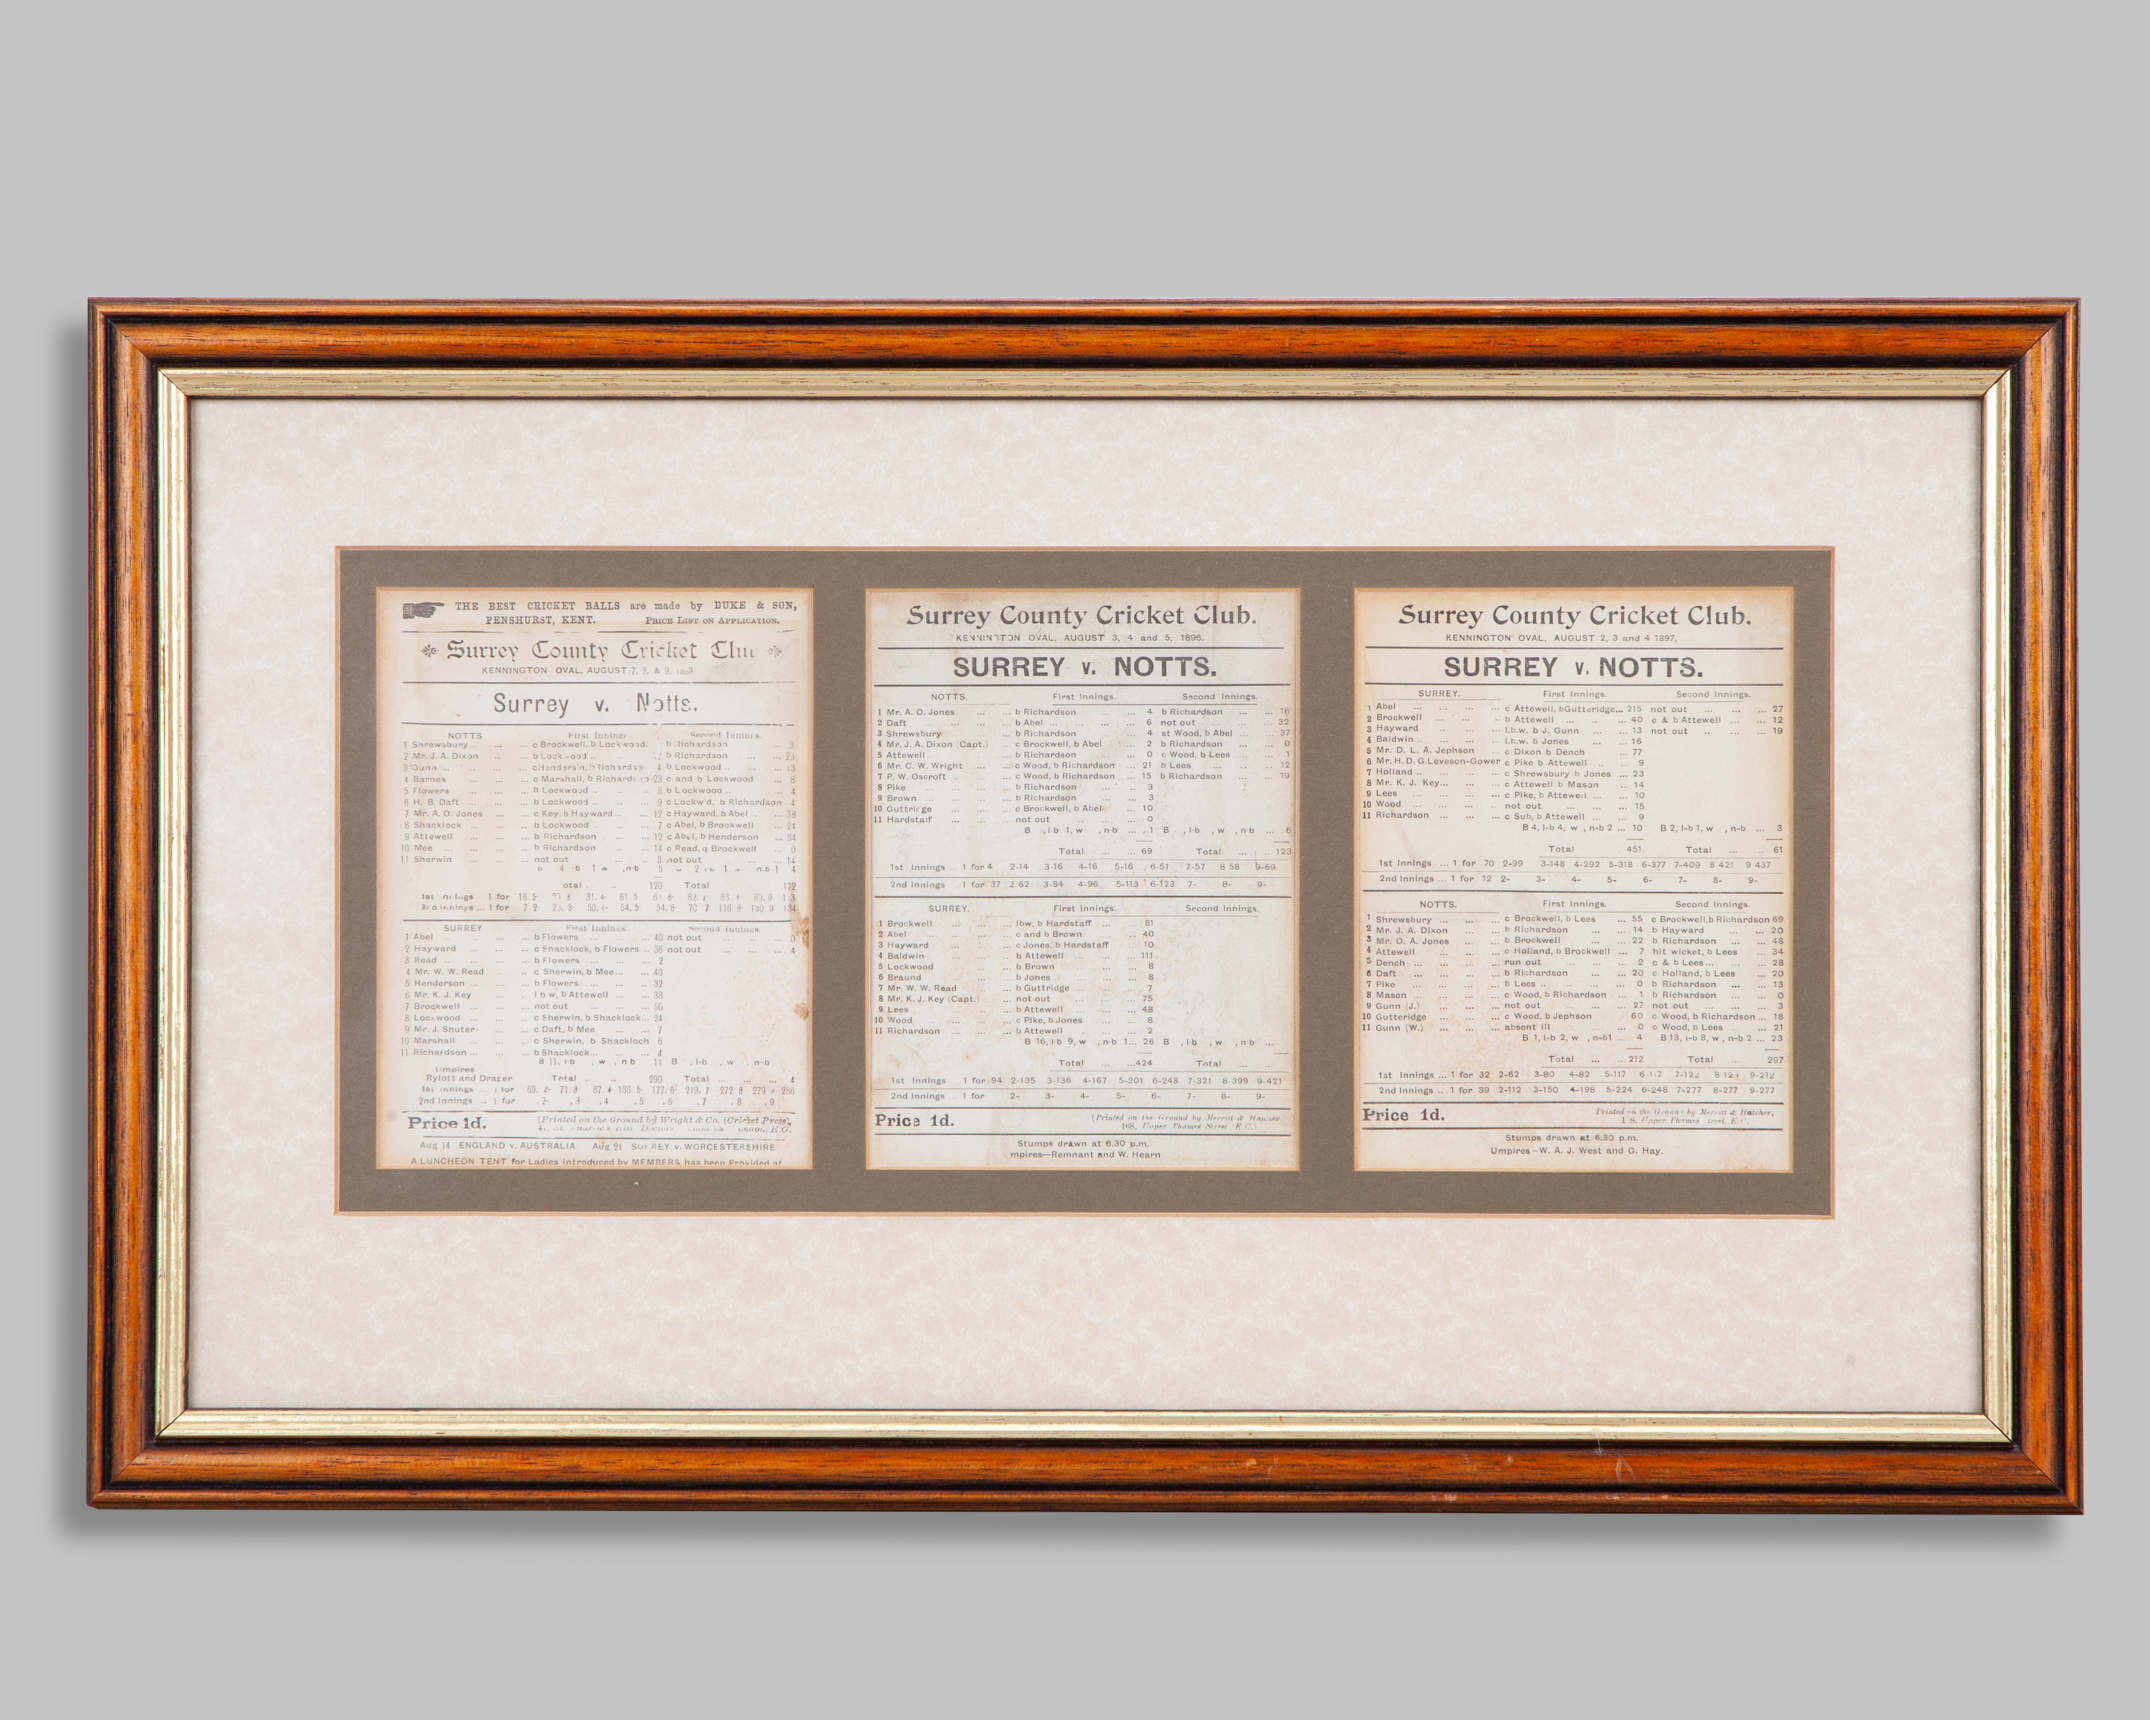 THE BEST CRICKET BALLS are made by DUKE & SON,
PENSHURST, KENT. PRICE LIST ON APPLICATION.
Surrey County Cricket
KENNINGTON OVAL, AUGUST 7, 8, & 9,
Surrey v. Notts.
NOTTS First Innings Second Innings.
1 Shrewsbury ... c Brockwell, b Lockwood. b Richardson ... 3
2 Mr. J. A. Dixon ... b Lockwood b Richardson ... 23
3 Gunn ... c Henders'n, b Richardsn 4 b Lockwood ... 13
4 Barnes ... c Marshall, b Richardson 23 c and b Lockwood ... 8
5 Flowers ... b Lockwood ... 8 b Lockwood ... 4
6 H. B. Daft ... b Lockwood ... 9 c Lockw'd, b Richardson 4
7 Mr. A. O. Jones ... c Key, b Hayward ... 12 c Hayward, b Abel ... 38
8 Shacklock ... b Lockwood ... 7 c Abel, b Brockwell ... 24
9 Attewell ... b Richardson ... 12 c Abel, b Henderson ... 34
10 Mee ... b Richardson ... 14 c Read, q Brockwell ... 0
11 Sherwin ... not out ... 8 not out ... 14
120 Total 172
SURREY First Innings. Second Innings.
1 Abel ... b Flowers ... 40 not out ... 0
2 Hayward ... c Shacklock, b Flowers ... 36 not out ... 4
3 Read ... b Flowers ... 2
4 Mr. W. W. Read c Sherwin, b Mee ... 40
5 Henderson ... b Flowers. ... 32
6 Mr. K. J. Key l b w, b Attewell ... 38
7 Brockwell ... not out ... 56
8 Lockwood ... c Sherwin, b Shacklock... 24
9 Mr. J. Shuter ... c Daft, b Mee ... 7
10 Marshall ... c Sherwin, b Shackloch 6
11 Richardson ... b Shacklock... 4
B 11, l-b , w , n b 11 B , l-b , w , n-b
Umpires
Rylott and Draper Total ... 290 Total ... 4
2nd Innings .. 1 for 2- 3- 4 5- 6- 7- 8 9
Price 1d. (Printed on the Ground by Wright & Co. (Cricket Press),
Aug 14 ENGLAND v. AUSTRALIA Aug 21 SURREY v. WORCESTERSHIRE
A LUNCHEON TENT for Ladies introduced by MEMBERS has been Provided at
Surrey County Cricket Club.
KENNINGTON OVAL, AUGUST 3, 4 and 5, 1896.
SURREY v. NOTTS.
NOTTS. First Innings. Second Innings.
1 Mr. A. O. Jones ... b Richardson ... 4 b Richardson ... 16
2 Daft ... b Abel ... 6 not out ... 32
3 Shrewsbury ... b Richardson ... 4 st Wood, b Abel ... 37
4 Mr. J. A. Dixon (Capt.) ... c Brockwell, b Abel ... 2 b Richardson ... 0
5 Attewell ... b Richardson ... 0 c Wood, b Lees ... 1
6 Mr. C. W. Wright ... c Wood, b Richardson ... 21 b Lees ... 12
7 P. W. Oscroft ... c Wood, b Richardson ... 15 b Richardson ... 19
8 Pike ... b Richardson ... 3
9 Brown ... b Richardson ... 3
10 Guttridge ... c Brockwell, b Abel ... 10
11 Hardstaff ... not out ... 0
B , l b 1, w , n b ... 1 B , l b , w , n b ... 6
Total ... 69 Total ... 123
1st Innings 1 for 4 2-14 3-16 4-16 5-16 6-51 7-57 8 58 9-69
2nd Innings 1 for 37 2 62 3-84 4-96 5-113 6-123 7- 8- 9-
SURREY. First Innings. Second Innings.
1 Brockwell ... lbw, b Hardstaff ... 81
2 Abel ... c and b Brown ... 40
3 Hayward ... c Jones, b Hardstaff ... 10
4 Baldwin ... b Attewell ... 111
5 Lockwood ... b Brown ... 8
6 Braund ... b Jones ... 8
7 Mr. W. W. Read ... b Guttridge ... 7
8 Mr. K. J. Key (Capt.) ... not out ... 75
9 Lees ... b Attewell ... 48
10 Wood ... c Pike, b Jones ... 8
11 Richardson ... b Attewell ... 2
B 16, l-b 9, w , n b 1... 26 B , l b , w , n-b ...
Total ... 424 Total ...
1st Innings 1 for 94 2-135 3-136 4-167 5-201 6-248 7-321 8-399 9-421
2nd Innings 1 for 2- 3- 4- 5- 6- 7- 8- 9-
Price 1d. (Printed on the Ground by Merritt & Hatcher
168, Upper Thames Street E.C.)
Stumps drawn at 6.30 p.m.
mpires—Remnant and W. Hearn
Surrey County Cricket Club.
KENNINGTON OVAL, AUGUST 2, 3 and 4 1897,
SURREY v. NOTTS.
SURREY. First Innings. Second Innings.
1 Abel ... c Attewell, b Gutteridge... 215 not out ... 27
2 Brockwell ... b Attewell ... 40 c & b Attewell ... 12
3 Hayward ... l.b.w. b J. Gunn ... 13 not out ... 19
4 Baldwin ... l.b.w. b Jones ... 16
5 Mr. D. L. A. Jephson ... c Dixon b Dench ... 77
6 Mr. H. D. G. Leveson-Gower c Pike b Attewell .. 9
7 Holland ... c Shrewsbury b Jones ... 23
8 Mr. K. J. Key... c Attewell b Mason ... 14
9 Lees ... c Pike, b Attewell ... 10
10 Wood ... not out ... 15
11 Richardson ... c Sub, b Attewell ... 9
B 4, l-b 4, w , n-b 2 ... 10 B 2, l-b 1, w , n-b ... 3
Total 451 Total ... 61
1st Innings ... 1 for 70 2-99 3-148 4-292 5-318 6-377 7-409 8 421 9 437
2nd Innings ... 1 for 12 2- 3- 4- 5- 6- 7- 8- 9-
NOTTS. First Innings. Second Innings.
1 Shrewsbury ... c Brockwell, b Lees ... 55 c Brockwell, b Richardson 69
2 Mr. J. A. Dixon ... b Richardson ... 14 b Hayward ... 20
3 Mr. O. A. Jones ... b Brockwell ... 22 b Richardson ... 48
4 Attewell ... c Holland, b Brockwell ... 7 hit wicket, b Lees ... 34
5 Dench ... run out ... 2 c & b Lees ... 28
6 Daft ... b Richardson ... 20 c Holland, b Lees ... 20
7 Pike ... b Lees ... 0 b Richardson ... 13
8 Mason ... c Wood, b Richardson ... 1 b Richardson ... 0
9 Gunn (J.) ... not out ... 27 not out ... 3
10 Gutteridge ... c Wood, b Jephson 60 c Wood, b Richardson ... 18
11 Gunn (W.) ... absent ill ... 0 c Wood, b Lees ... 21
B 1, l-b 2, w , n-b1 ... 4 B 13, l-b 8, w , n-b 2 ... 23
Total ... 212 Total ... 297
1st Innings ... 1 for 32 2-62 3-80 4-82 5-117 6-117 7-122 8 124 9-212
2nd Innings .. 1 for 39 2-112 3-150 4-198 5-224 6-248 7-277 8-277 9-277
Price 1d. Printed on the Ground by Merritt & Hatcher,
Upper Thames Street, E.C.
Stumps drawn at 6.30 p.m.
Umpires—W. A. J. West and G. Hay.